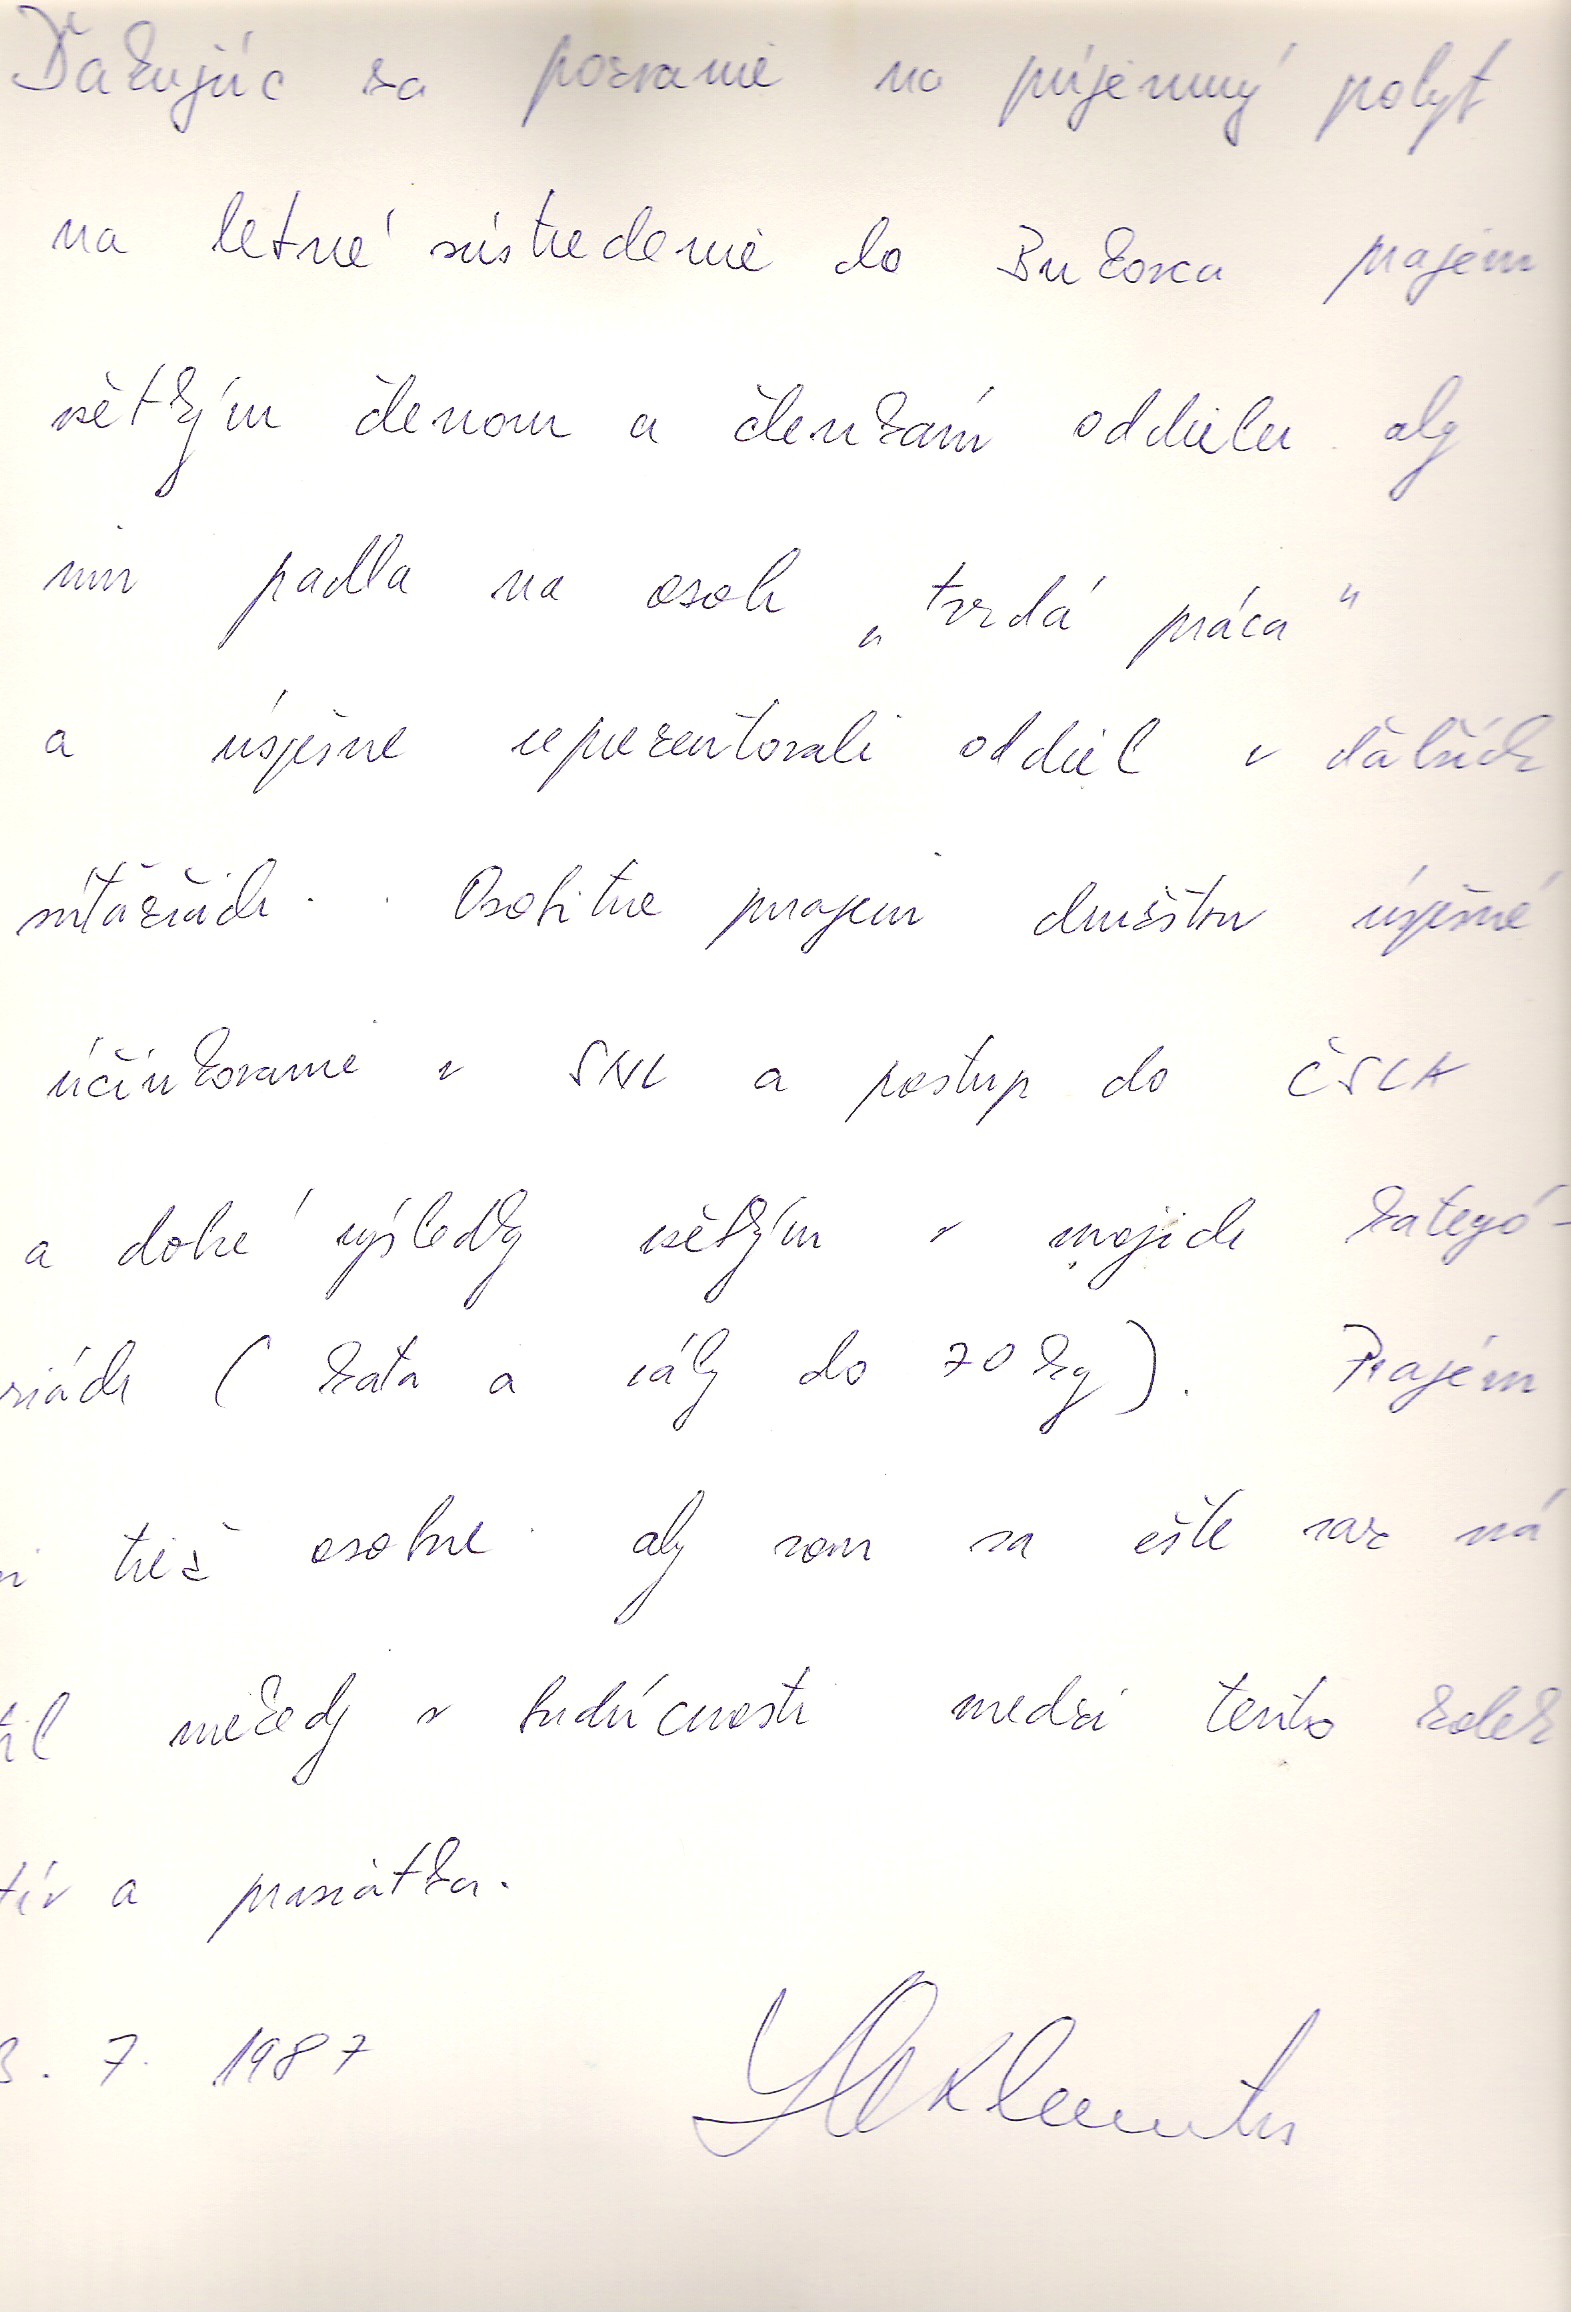 Ďakujúc za pozvanie na príjemný pobyt
na letné sústredenie do Bukovca prajem
všetkým členom a členkám oddielu aby
im padla na osoh „tvrdá práca“
a úspešne reprezentovali oddiel v ďalších
súťažiach. Osobitne prajem družstvu úspešné
účinkovanie v SNL a postup do ČSLK
a dobré výsledky všetkým v mojich kategó-
riách (kata a váhy do 70 kg). Prajem
si tiež osobne aby som sa ešte raz ná
til niekedy v budúcnosti medzi tento kolek
tív a prasiatka.
3. 7. 1987 Klementis